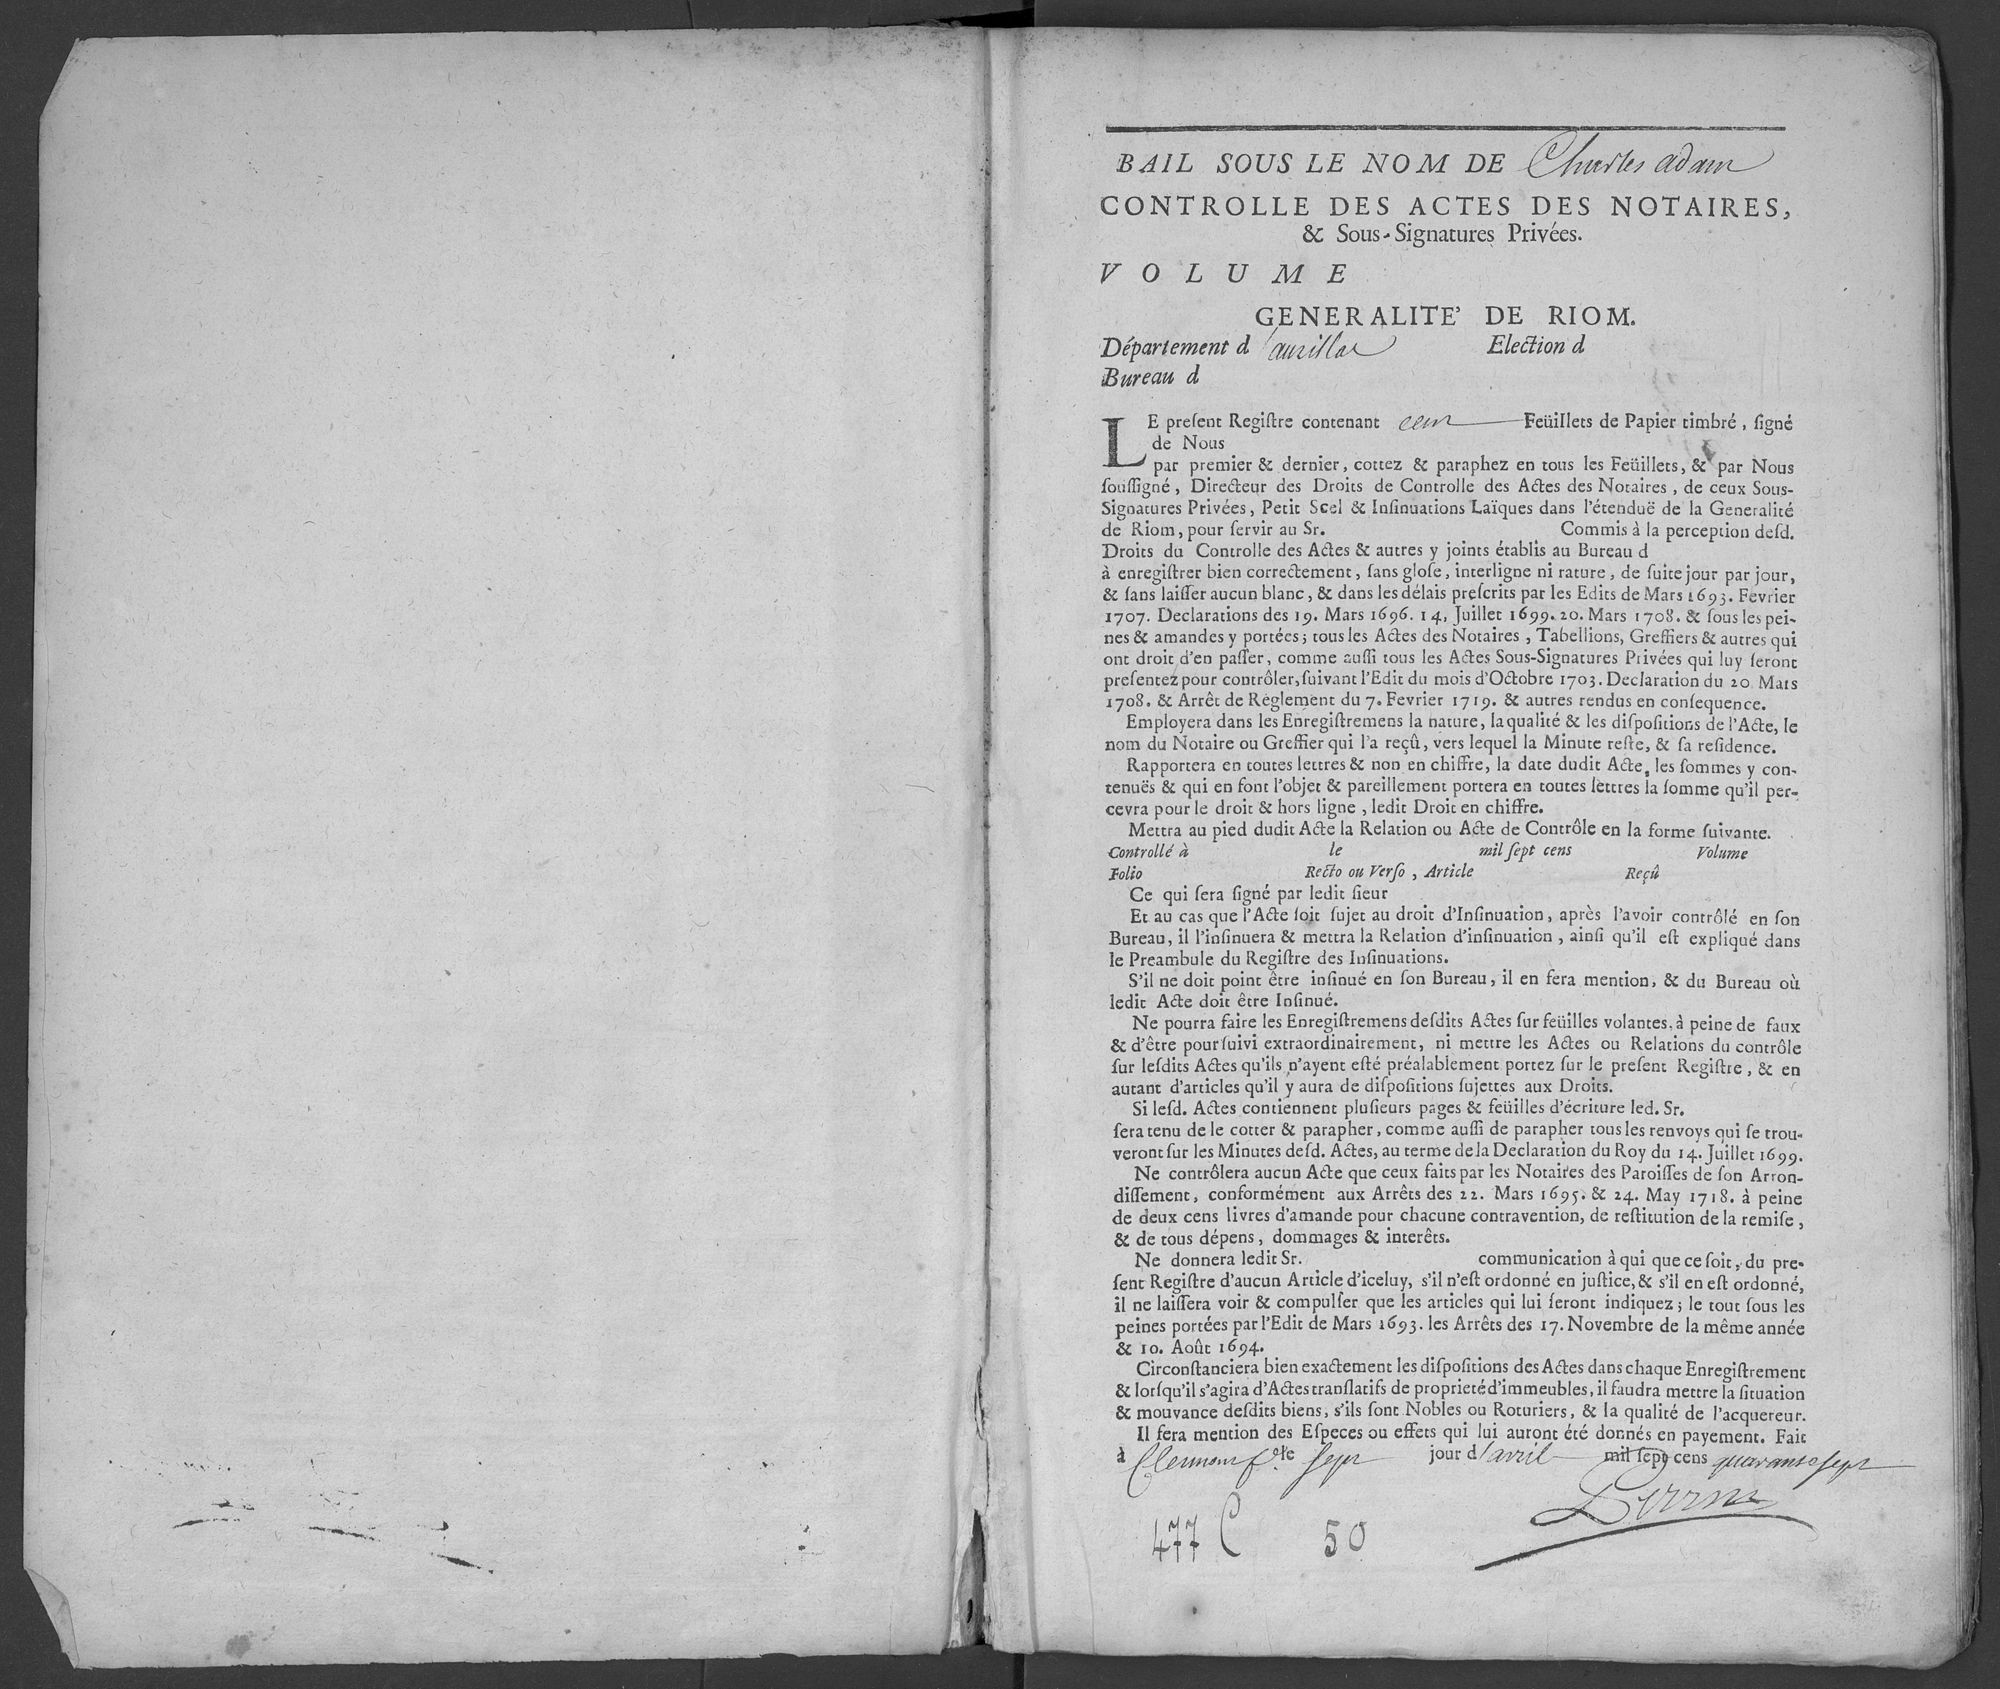 BAIL SOUS LE NOM DE Charles adam
CONTROLLE DES ACTES DES NOTAIRES,
& Sous-Signatures Privées.
VOLUME
GENERALITE' DE RIOM.
Département d'aurillac Election d
Bureau d
LE preſent Regiſtre contenant cent Feüillets de Papier timbré, ſigné
de Nous
par premier & dernier, cottez & paraphez en tous les Feüillets, & par Nous
ſouſſigné, Directeur des Droits de Controlle des Actes des Notaires, de ceux Sous-
Signatures Privées, Petit Scel & Inſinuations Laïques dans l'étenduë de la Generalité
de Riom, pour ſervir au Sr. Commis à la perception deſd.
Droits du Controlle des Actes & autres y joints établis au Bureau d
à enregiſtrer bien correctement, ſans gloſe, interligne ni rature, de ſuite jour par jour,
& ſans laiſſer aucun blanc, & dans les délais preſcrits par les Edits de Mars 1693. Fevrier
1707. Declarations des 19. Mars 1696. 14, Juillet 1699. 20. Mars 1708. & ſous les pei-
nes & amandes y portées; tous les Actes des Notaires, Tabellions, Greffiers & autres qui
ont droit d'en paſſer, comme auſſi tous les Actes Sous-Signatures Privées qui luy ſeront
preſentez pour contrôler, ſuivant l'Edit du mois d'Octobre 1703. Declaration du 20 Mars
1708. & Arrêt de Réglement du 7. Fevrier 1719. & autres rendus en conſequence.
Employera dans les Enregiſtremens la nature, la qualité & les diſpoſitions de l'Acte, le
nom du Notaire ou Greffier qui l'a reçû, vers lequel la Minute reſte, & ſa reſidence.
Rapportera en toutes lettres & non en chiffre, la date dudit Acte, les ſommes y con-
tenuës & qui en font l'objet & pareillement portera en toutes lettres la ſomme qu'il per-
cevra pour le droit & hors ligne, ledit Droit en chiffre.
Mettra au pied dudit Acte la Relation ou Acte de Contrôle en la forme ſuivante.
Controllé à le mil ſept cens Volume
Folio Recto ou Verſo, Article Reçû
Ce qui ſera ſigné par ledit ſieur
Et au cas que l'Acte ſoit ſujet au droit d'Inſinuation, après l'avoir contrôlé en ſon
Bureau, il l'inſinuera & mettra la Relation d'inſinuation, ainſi qu'il eſt expliqué dans
le Preambule du Regiſtre des Inſinuations.
S'il ne doit point être inſinué en ſon Bureau, il en fera mention, & du Bureau où
ledit Acte doit être Inſinué.
Ne pourra faire les Enregiſtremens deſdits Actes ſur feüilles volantes, à peine de faux
& d'être pourſuivi extraordinairement, ni mettre les Actes ou Relations du contrôle
ſur leſdits Actes qu'ils n'ayent eſté préalablement portez ſur le preſent Regiſtre, & en
autant d'articles qu'il y aura de diſpoſitions ſujettes aux Droits.
Si leſd. Actes contiennent pluſieurs pages & feüilles d'écriture led. Sr.
ſera tenu de le cotter & parapher, comme auſſi de parapher tous les renvoys qui ſe trou-
veront ſur les Minutes deſd. Actes, au terme de la Declaration du Roy du 14. Juillet 1699.
Ne contrôlera aucun Acte que ceux faits par les Notaires des Paroiſſes de ſon Arron-
diſſement, conformément aux Arrêts des 22. Mars 1695. & 24. May 1718. à peine
de deux cens livres d'amande pour chacune contravention, de reſtitution de la remiſe,
& de tous dépens, dommages & interêts.
Ne donnera ledit Sr. communication à qui que ce ſoit, du pre-
ſent Regiſtre d'aucun Article d'iceluy, s'il n'eſt ordonné en juſtice, & s'il en eſt ordonné,
il ne laiſſera voir & compulſer que les articles qui lui ſeront indiquez; le tout ſous les
peines portées par l'Edit de Mars 1693. les Arrêts des 17. Novembre de la même année
& 10. Août 1694.
Circonſtanciera bien exactement les diſpoſitions des Actes dans chaque Enregiſtrement
& lorſqu'il s'agira d'Actes tranſlatifs de proprieté d'immeubles, il faudra mettre la ſituation
& mouvance deſdits biens, s'ils ſont Nobles ou Roturiers, & la qualité de l'acquereur.
Il ſera mention des Eſpeces ou effets qui lui auront été donnés en payement. Fait
à Clermont fd le sept jour d'avril mil ſept cens quarante sept
477 C 50